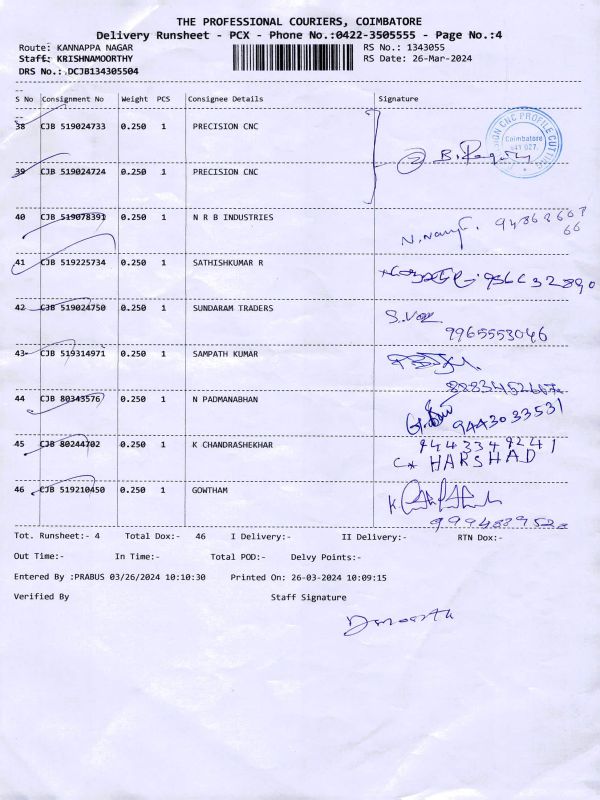 THE PROFESSIONAL COURIERS, COIMBATORE
Delivery Runsheet - PCX - Phone No.:0422-3505555 - Page No.:4
Route: KANNAPPA NAGAR RS No.: 1343055
Staff: KRISHNAMOORTHY RS Date: 26-Mar-2024
DRS No.: DCJB134305504
S No Consignment No Weight PCS Consignee Details Signature
38 CJB 519024733 0.250 1 PRECISION CNC
CNC PROFILE CUTTING
Coimbatore
641 027.
39 CJB 519024724 0.250 1 PRECISION CNC
40 CJB 519078391 0.250 1 N R B INDUSTRIES
41 CJB 519225734 0.250 1 SATHISHKUMAR R
42 CJB 519024750 0.250 1 SUNDARAM TRADERS
9965553046
43 CJB 519314971 0.250 1 SAMPATH KUMAR
44 CJB 80343576 0.250 1 N PADMANABHAN
9443033531
45 CJB 80244702 0.250 1 K CHANDRASHEKHAR
9443349241
HARSHAD
46 CJB 519210450 0.250 1 GOWTHAM
Tot. Runsheet:- 4 Total Dox:- 46 I Delivery:- II Delivery:- RTN Dox:-
Out Time:- In Time:- Total POD:- Delvy Points:-
Entered By :PRABUS 03/26/2024 10:10:30 Printed On: 26-03-2024 10:09:15
Verified By Staff Signature